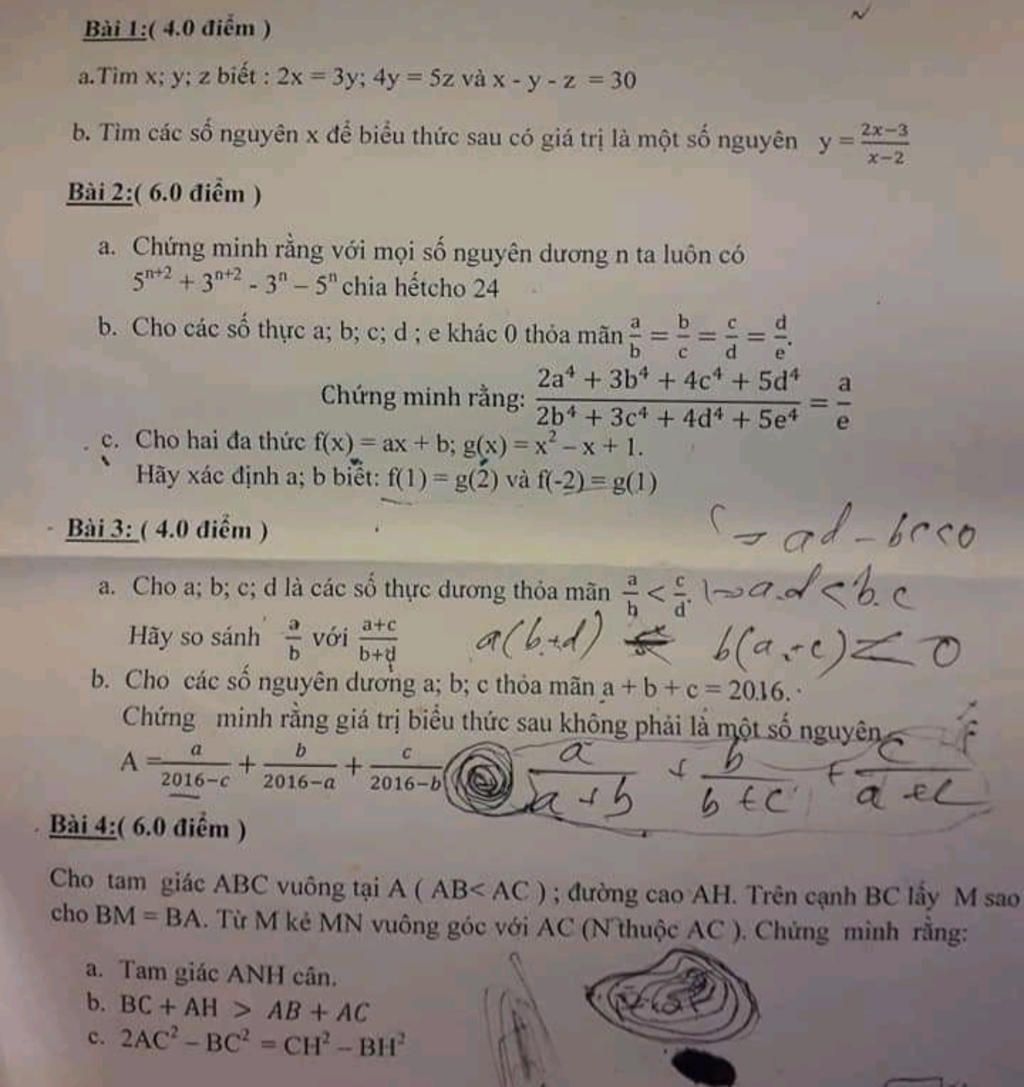 Bài 1:( 4.0 điểm )
a.Tìm x; y; z biết : 2x = 3y; 4y = 5z và x - y - z = 30
b. Tìm các số nguyên x để biểu thức sau có giá trị là một số nguyên y = \frac{2x-3}{x-2}
Bài 2:( 6.0 điểm )
a. Chứng minh rằng với mọi số nguyên dương n ta luôn có
5^{n+2} + 3^{n+2} - 3^n – 5^n chia hếtcho 24
b. Cho các số thực a; b; c; d ; e khác 0 thỏa mãn \frac{a}{b} = \frac{b}{c} = \frac{c}{d} = \frac{d}{e}.
Chứng minh rằng: \frac{2a^4 + 3b^4 + 4c^4 + 5d^4}{2b^4 + 3c^4 + 4d^4 + 5e^4} = \frac{a}{e}
c. Cho hai đa thức f(x) = ax + b; g(x) = x^2 – x + 1.
Hãy xác định a; b biết: f(1) = g(2) và f(-2) = g(1)
Bài 3: ( 4.0 điểm )
⇒ ad - bc < 0
a. Cho a; b; c; d là các số thực dương thỏa mãn \frac{a}{b} < \frac{c}{d}. ⇒ a.d < b.c
Hãy so sánh \frac{a}{b} với \frac{a+c}{b+d} a(b+d) b(a+c) < 0
b. Cho các số nguyên dương a; b; c thỏa mãn a + b + c = 2016.
Chứng minh rằng giá trị biểu thức sau không phải là một số nguyên
A = \frac{a}{2016-c} + \frac{b}{2016-a} + \frac{c}{2016-b} \frac{a}{a+b} + \frac{b}{b+c} + \frac{c}{a+c}
Bài 4:( 6.0 điểm )
Cho tam giác ABC vuông tại A ( AB< AC ) ; đường cao AH. Trên cạnh BC lấy M sao
cho BM = BA. Từ M kẻ MN vuông góc với AC (N thuộc AC ). Chứng minh rằng:
a. Tam giác ANH cân.
b. BC + AH > AB + AC
c. 2AC^2 – BC^2 = CH^2 – BH^2